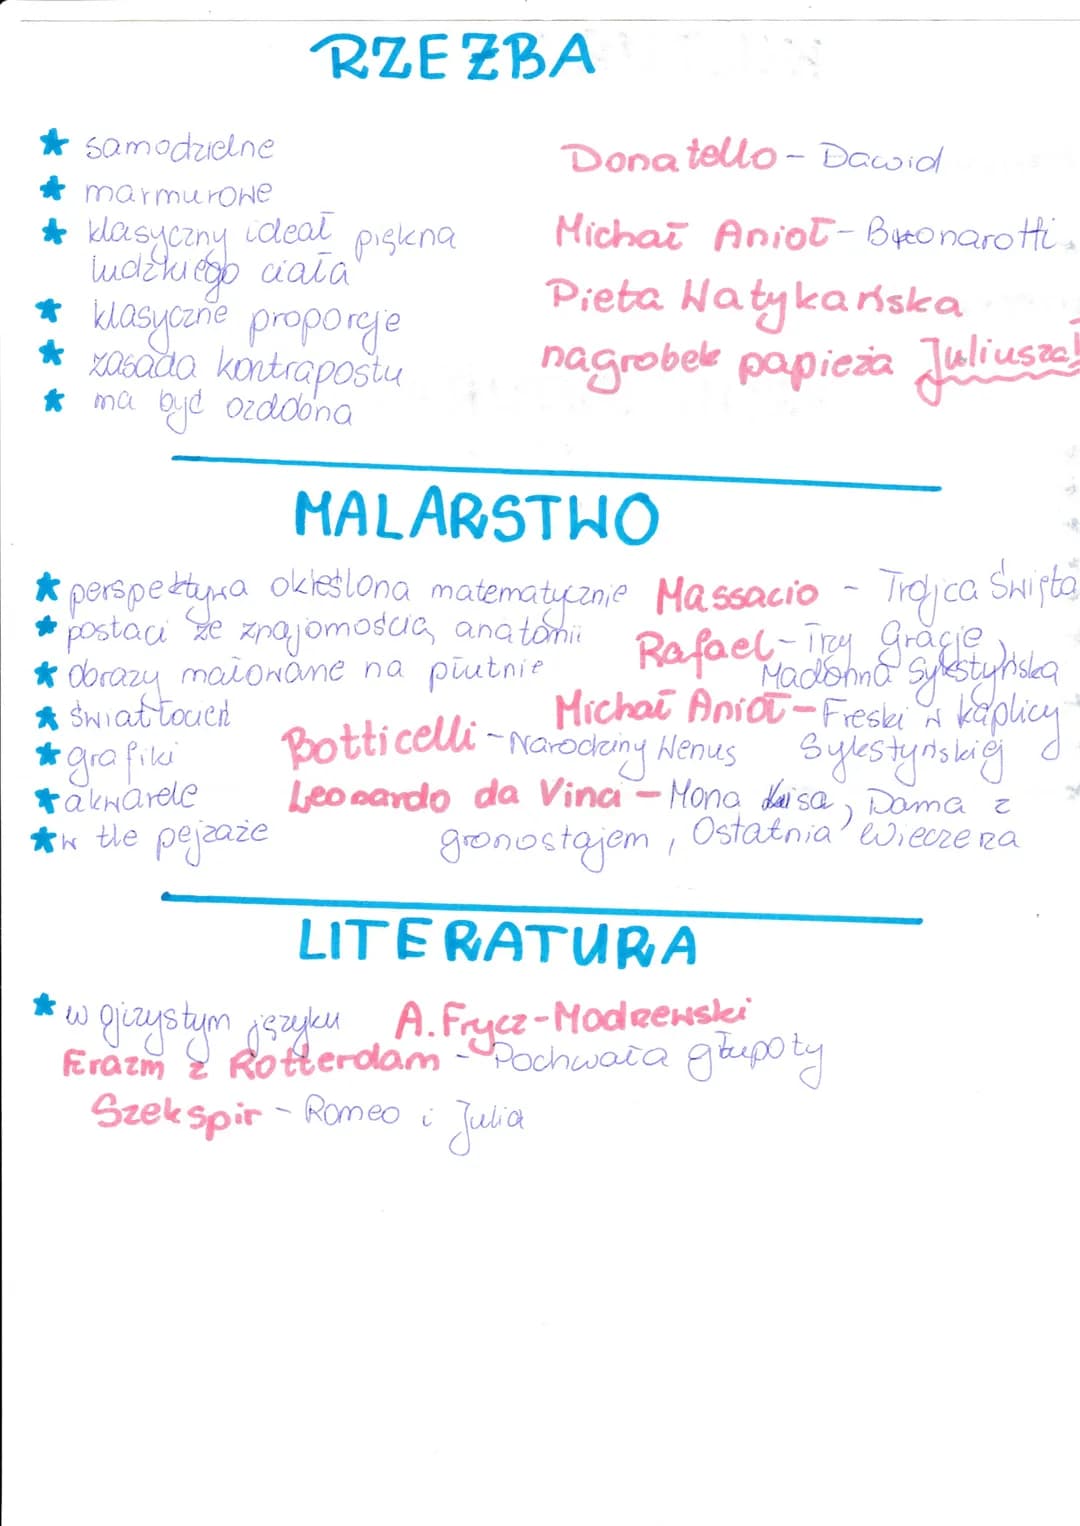 RZEŹBA
★ samodzielne
★ marmurowe
★ klasyczny ideał piękna
ludzkiego ciała
★ klasyczne proporcje
★ zasada kontrapostu
★ ma być ozdobna
Donatello - Dawid
Michał Anioł - Buonarotti
Pieta Watykańska
nagrobek papieża Juliusza
MALARSTWO
★ perspektywa określona matematycznie
★ postaci ze znajomością anatomii
★ obrazy malowane na płutnie
★ światłocień
★ grafiki
★ akwarele
★ w tle pejzaże
Massacio - Trójca Święta
Rafael - Trzy Gracje,
Madonna Sykstyńska
Michał Anioł - Freski w kaplicy
Sykstyńskiej
Botticelli - Narodziny Wenus
Leonardo da Vinci - Mona Luisa, Dama z
gronostajem, Ostatnia Wieczerza
LITERATURA
★ w ojczystym języku
A. Frycz-Modrzewski
Erazm z Rotterdam - Pochwała głupoty
Szekspir - Romeo i Julia